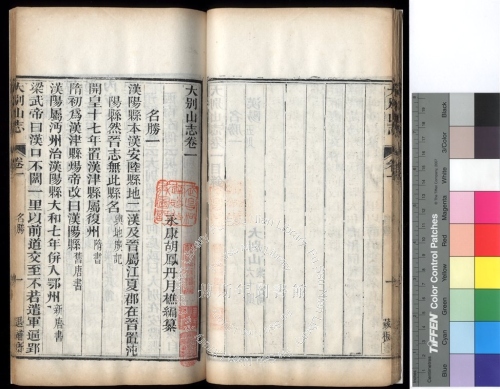 大別山志卷一
永康胡鳳丹月樵編纂
名勝一
漢陽縣本漢安陸縣地二漢及晉屬江夏郡在晉置沌
陽縣然晉志無此縣名輿地廣記
開皇十七年置漢津縣屬復州隋書
隋初為漢津縣煬帝改曰漢陽縣舊唐書
漢陽屬沔州治漢陽縣大和七年併入鄂州新唐書
梁武帝曰漢口不闊一里以前道交至不若遣軍逼郢
大別山志 卷一 名勝 一 退補齋
TIFFEN Color Control Patches
Blue
Cyan
Green
Yellow
Red
Magenta
White
3/Color
Black